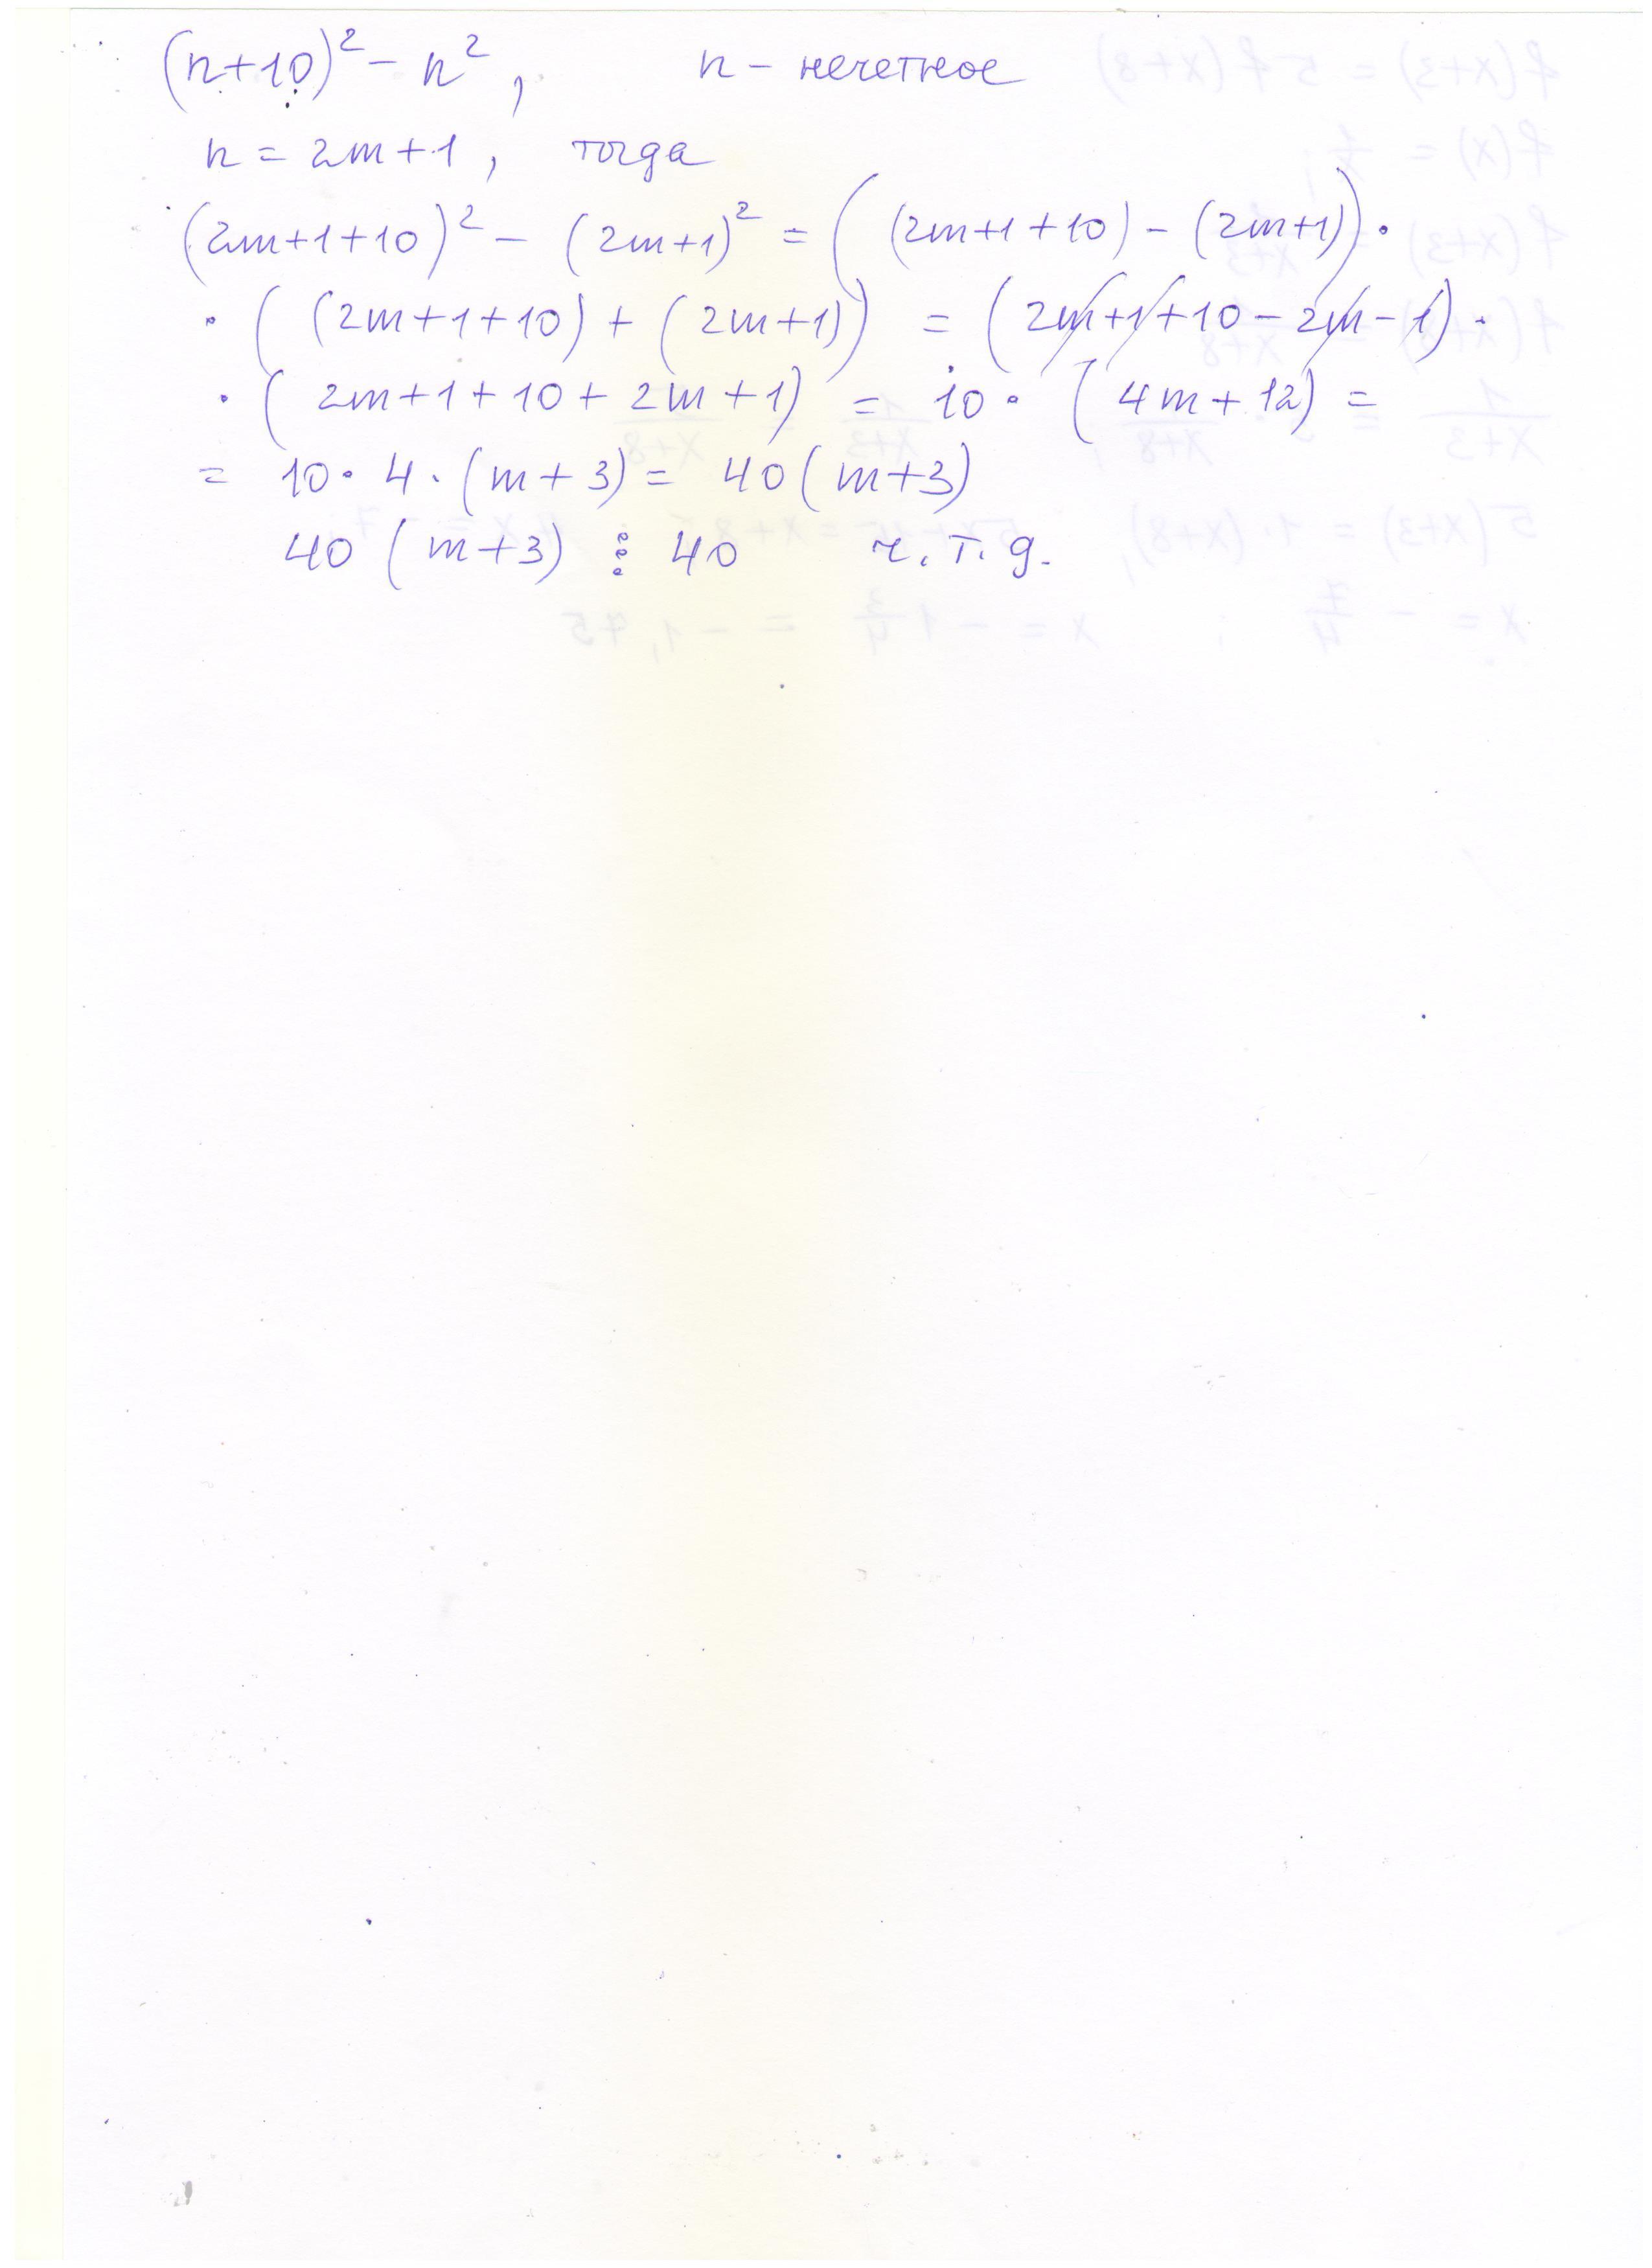 (n+10)² − n², n − нечетное
n = 2m+1, тогда
(2m+1+10)² − (2m+1)² = ((2m+1+10) − (2m+1)) ·
· ((2m+1+10) + (2m+1)) = (2m+1+10−2m−1) ·
· (2m+1+10+2m+1) = 10 · (4m+12) =
= 10 · 4 · (m+3) = 40(m+3)
40(m+3) ⋮ 40 ч.т.д.